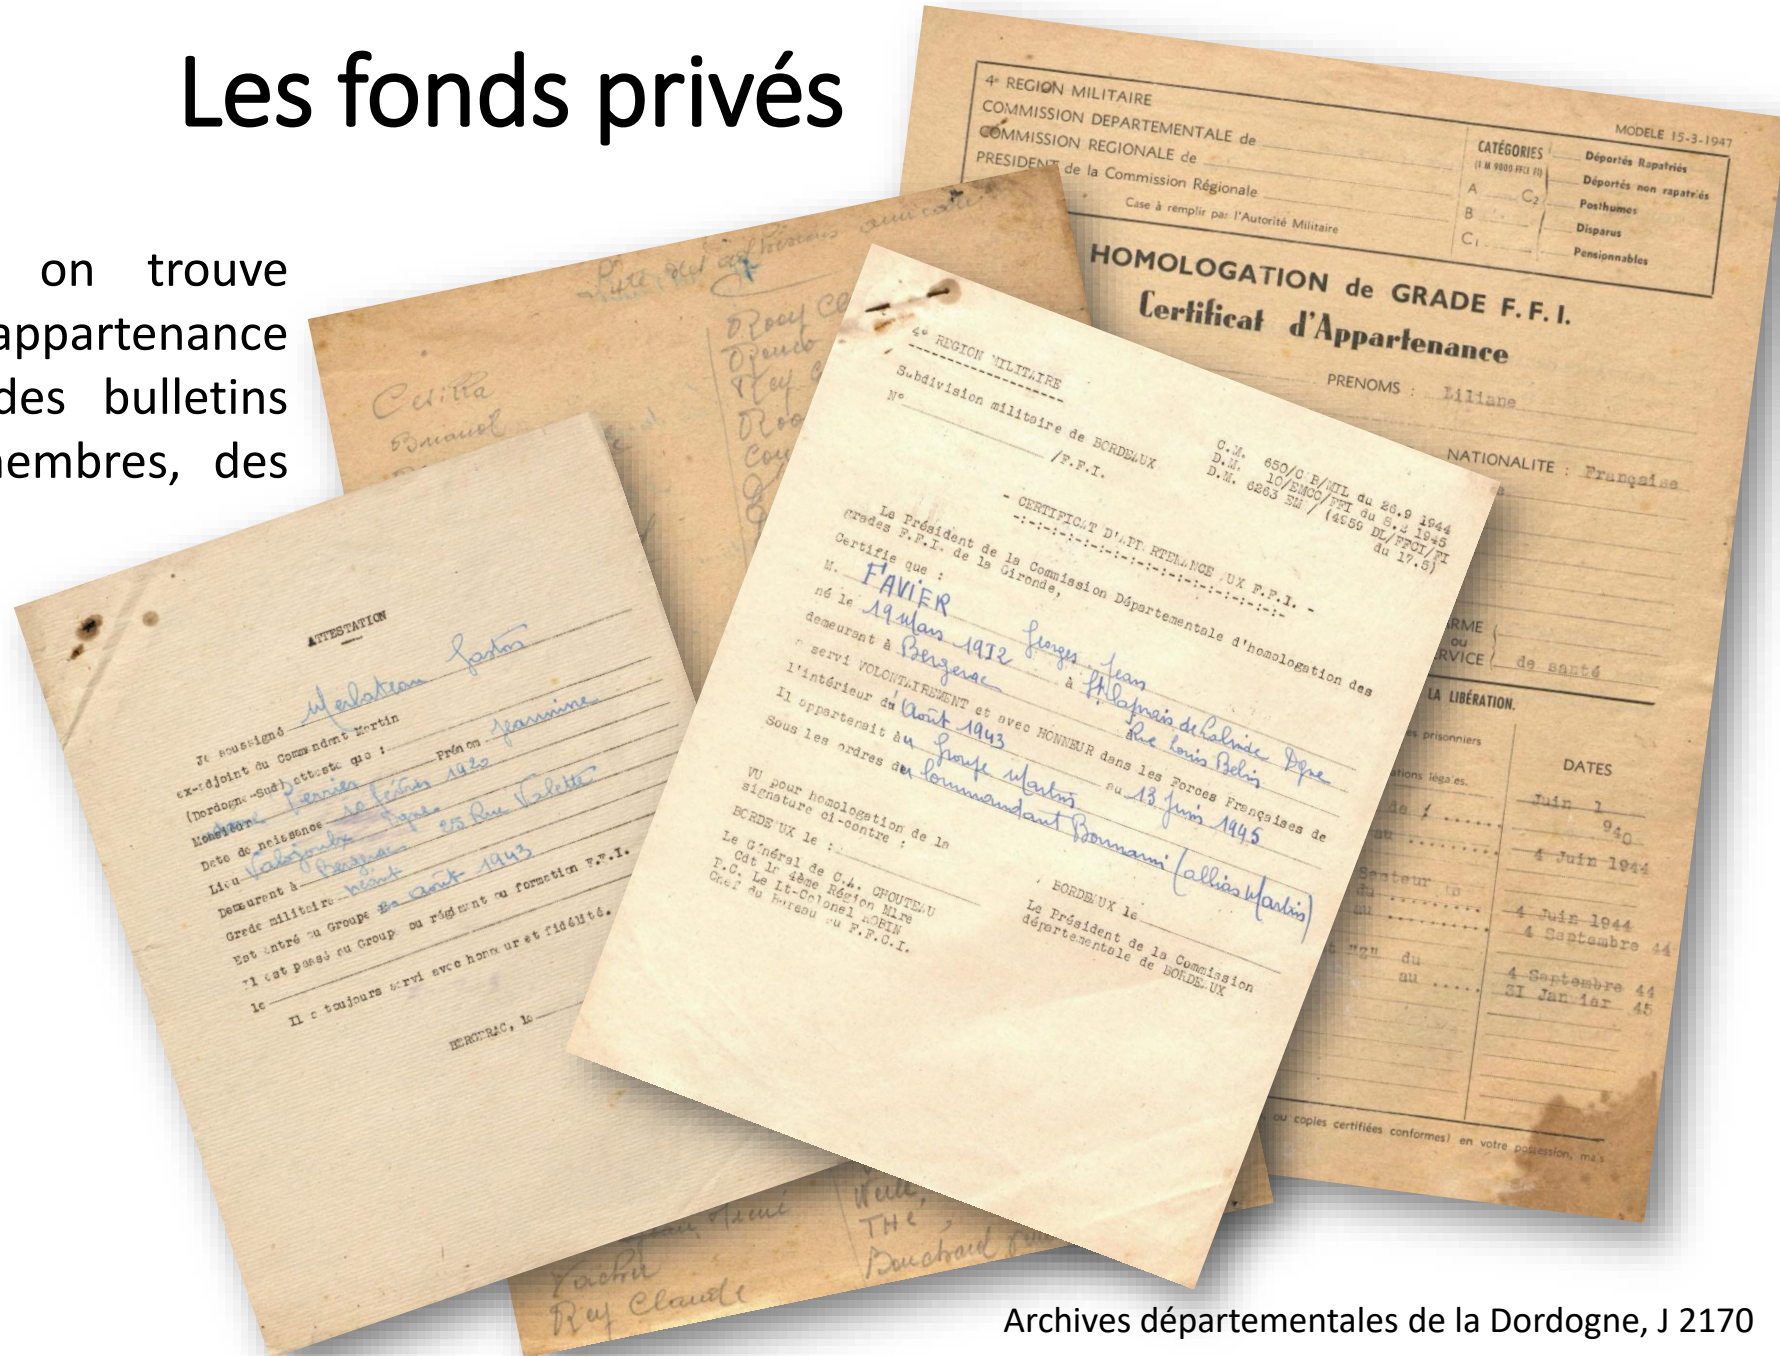 Les fonds privés
on trouve
appartenance
des bulletins
membres, des
4e REGION MILITAIRE
COMMISSION DEPARTEMENTALE de
COMMISSION REGIONALE de
PRESIDENT de la Commission Régionale
Case à remplir par l'Autorité Militaire
MODELE 15-3-1947
CATÉGORIES
A C2
B
C1
Déportés Rapatriés
Déportés non rapatriés
Posthumes
Disparus
Pensionnables
HOMOLOGATION de GRADE F.F.I.
Certificat d'Appartenance
PRENOMS : Liliane
NATIONALITE : Française
ARME
ou
SERVICE de santé
LA LIBÉRATION.
prisonniers
légales.
DATES
Juin 1
940
4 Juin 1944
4 Juin 1944
4 Septembre 44
"Z" du
au
4 Septembre 44
31 Janvier 45
ou copies certifiées conformes) en votre possession, mais
Liste des adhésions
Brianol
Rey Claude
Bouchard
4° REGION MILITAIRE
Subdivision militaire de BORDEAUX
N° /F.F.I.
C.M. 650/C B/MIL du 26.9 1944
D.M. 10/EMCO/FFI du 1945
D.M. 6263 EM / (4959 DL/FFCI/FI
du 17.5)
- CERTIFICAT D'APPARTENANCE AUX F.F.I. -
Le Président de la Commission Départementale d'homologation des
grades F.F.I. de la Gironde,
Certifie que :
M. FAVIER Georges Jean
né le 19 Mars 1912 à de Lalinde Dgne
demeurant à Bergerac Rue Louis Belin
a servi VOLONTAIREMENT et avec HONNEUR dans les Forces Françaises de
l'intérieur du Août 1943 au 13 Juin 1945
Il appartenait au Groupe Martin
Sous les ordres du Commandant Bonnami (allias Martin)
VU pour homologation de la
signature ci-contre :
BORDEAUX le :
Le Général de C.A. CHOUTEAU
Cdt la 4ème Région Mire
P.C. Le Lt-Colonel ROBIN
Chef du Bureau du F.F.C.I.
BORDEAUX le
Le Président de la Commission
départementale de BORDEAUX
ATTESTATION
Je soussigné Merlateau Gaston
ex-adjoint du Commandant Martin
(Dordogne-Sud) atteste que :
Monsieur Perrier Prénom Jeannine
Date de naissance 10 février 1920
Lieu Valojoulx Dgne
Demeurant à Bergerac 25 Rue Valette
Grade militaire néant
Est entré au Groupe en août 1943
Il est passé au Groupe ou régiment ou formation F.F.I.
le
Il a toujours servi avec honneur et fidélité.
BERGERAC, le
Archives départementales de la Dordogne, J 2170